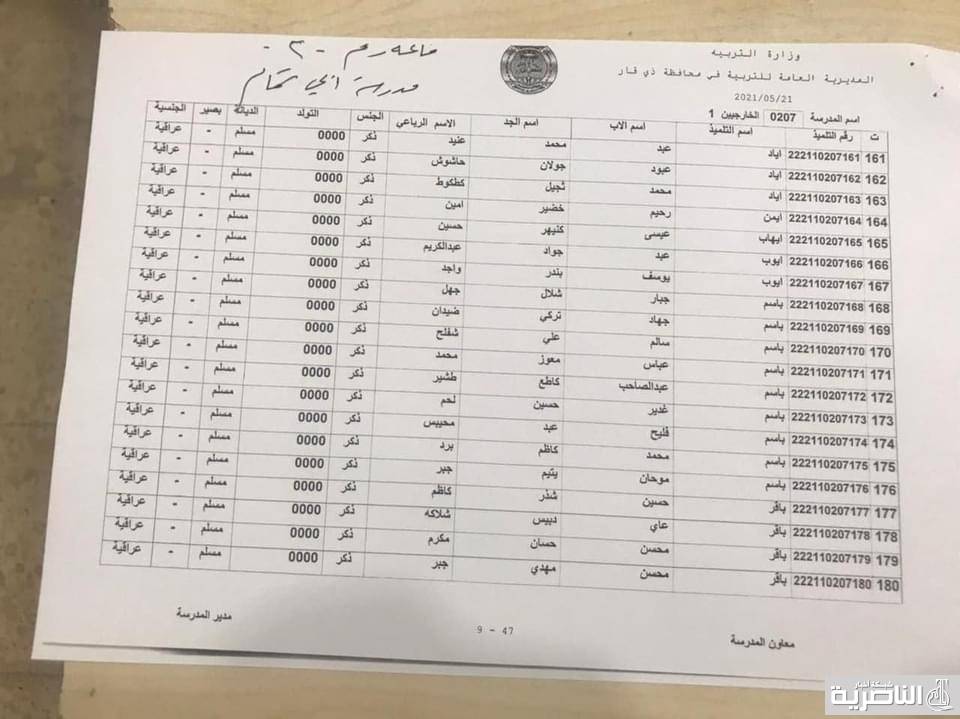 قاعة رقم - ٢ -
مدرسة أبي تمام
وزارة التربيه
المديرية العامة للتربية في محافظة ذي قار
2021/05/21
اسم المدرسة 0207 الخارجيين 1
ت رقم التلميذ اسم التلميذ اسم الاب اسم الجد الاسم الرباعي الجنس التولد الديانة بصير الجنسية
161 222110207161 اياد عبد محمد عنيد ذكر 0000 مسلم - عراقية
162 222110207162 اياد عبود جولان حاشوش ذكر 0000 مسلم - عراقية
163 222110207163 اياد محمد ثجيل كطكوط ذكر 0000 مسلم - عراقية
164 222110207164 ايمن رحيم خضير امين ذكر 0000 مسلم - عراقية
165 222110207165 ايهاب عيسى كنيهر حسين ذكر 0000 مسلم - عراقية
166 222110207166 ايوب عبد جواد عبدالكريم ذكر 0000 مسلم - عراقية
167 222110207167 ايوب يوسف بندر واجد ذكر 0000 مسلم - عراقية
168 222110207168 باسم جبار شلال جهل ذكر 0000 مسلم - عراقية
169 222110207169 باسم جهاد تركي ضيدان ذكر 0000 مسلم - عراقية
170 222110207170 باسم سالم علي شفلح ذكر 0000 مسلم - عراقية
171 222110207171 باسم عباس معوز محمد ذكر 0000 مسلم - عراقية
172 222110207172 باسم عبدالصاحب كاطع طشير ذكر 0000 مسلم - عراقية
173 222110207173 باسم غدير حسين لحم ذكر 0000 مسلم - عراقية
174 222110207174 باسم فليح عبد محيبس ذكر 0000 مسلم - عراقية
175 222110207175 باسم محمد كاظم برد ذكر 0000 مسلم - عراقية
176 222110207176 باسم موحان يتيم جبر ذكر 0000 مسلم - عراقية
177 222110207177 باقر حسين شذر كاظم ذكر 0000 مسلم - عراقية
178 222110207178 باقر عاي دبيس شلاكه ذكر 0000 مسلم - عراقية
179 222110207179 باقر محسن حسان مكرم ذكر 0000 مسلم - عراقية
180 222110207180 باقر محسن مهدي جبر ذكر 0000 مسلم - عراقية
معاون المدرسة
9 - 47
مدير المدرسة
شبكة أخبار
الناصرية